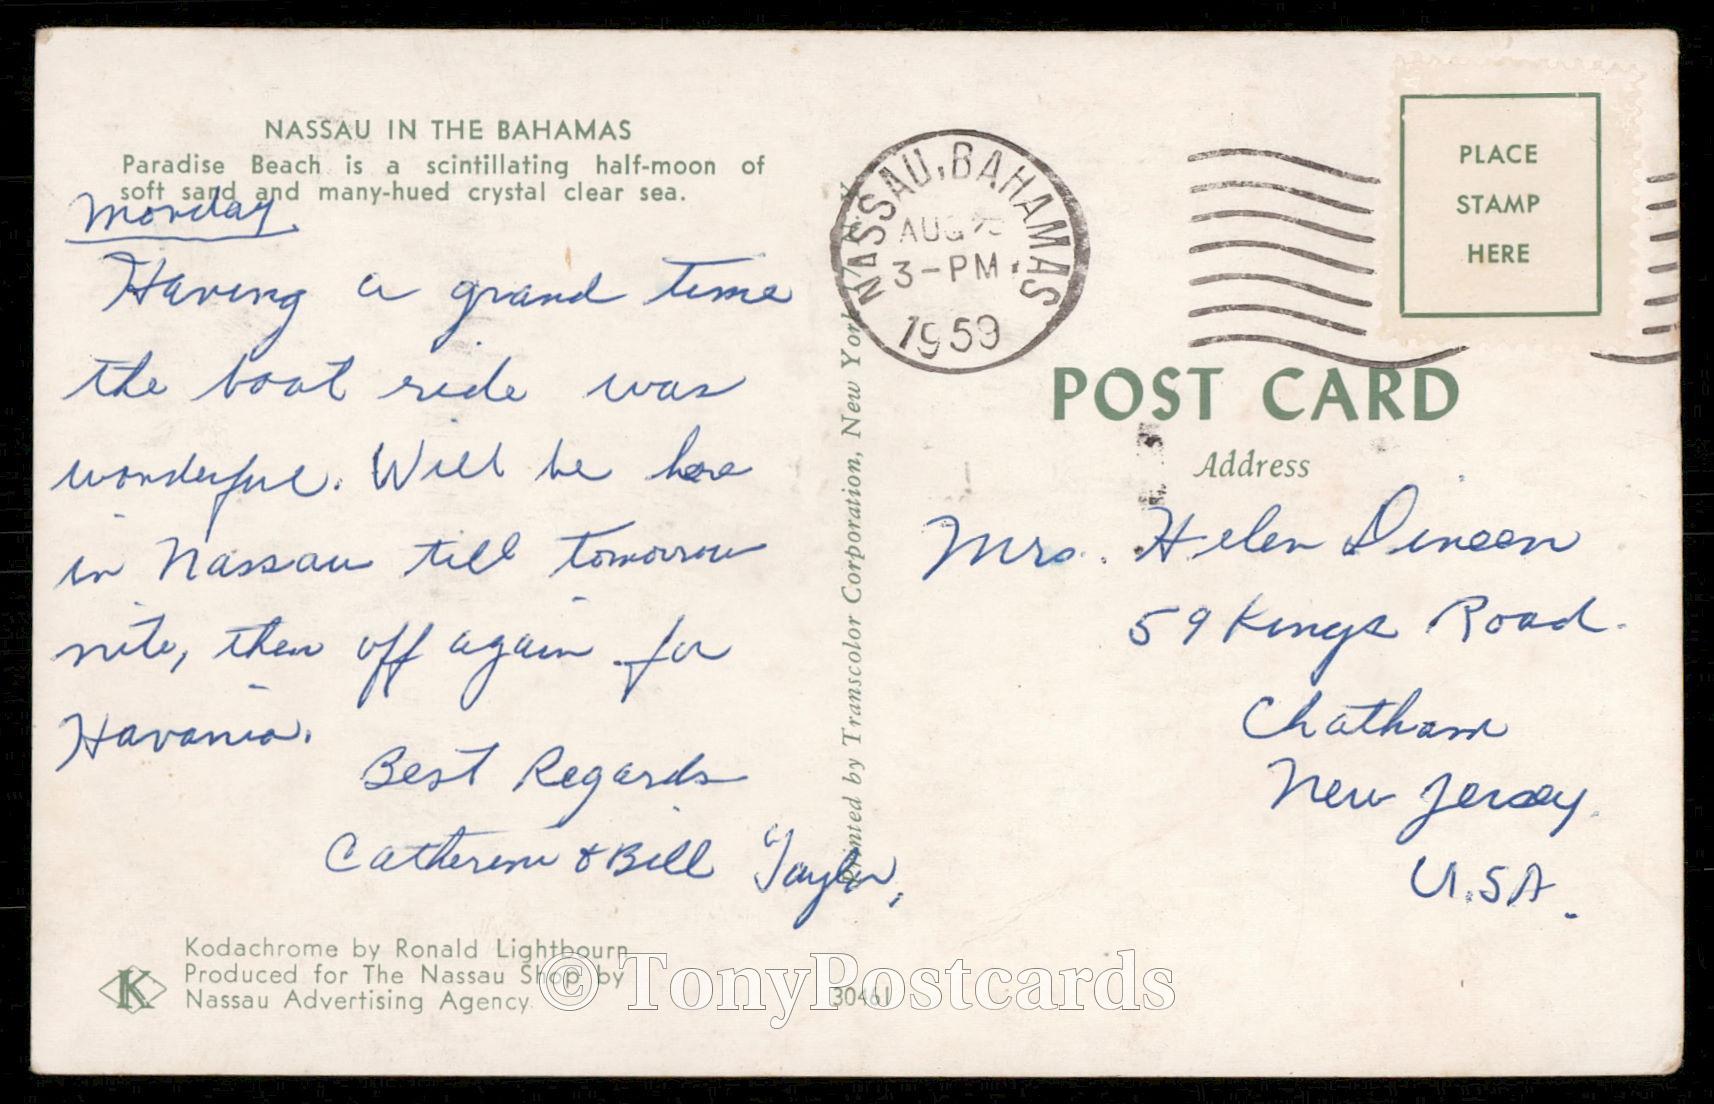 NASSAU IN THE BAHAMAS
Paradise Beach is a scintillating half-moon of
soft sand and many-hued crystal clear sea.
Monday
Having a grand time
the boat ride was
wonderful. Will be here
in Nassau till tomorrow
nite, then off again for
Havania.
Best Regards
Catherine & Bill Taylor,
Kodachrome by Ronald Lightbourn
Produced for The Nassau Shop by
Nassau Advertising Agency
K
30461
Printed by Transcolor Corporation, New York
NASSAU, BAHAMAS
AUG
3-PM
1959
PLACE
STAMP
HERE
POST CARD
Address
Mrs. Helen Dineen
59 Kings Road.
Chatham
New Jersey.
U.S.A.
© TonyPostcards